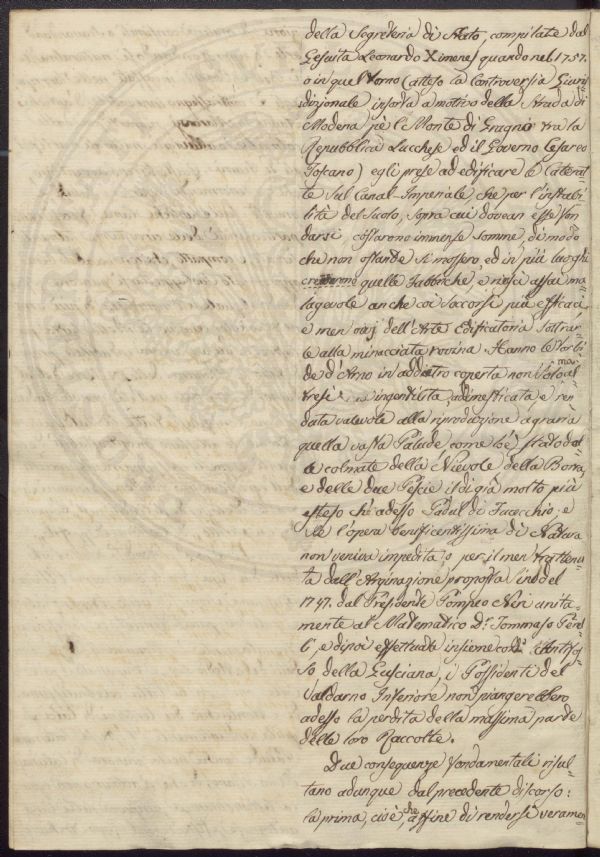 della Segreteria di Stato, compilate dal
Gesuita Leonardo Ximenes, quando nel 1757.
o in quel torno (atteso la controversia Giuris
dizionale insorta a motivo della Strada di
Modena pè l Monte di Gragno tra la
Repubblica Lucchese ed il Governo Cesareo
Toscano) egli prese ad edificare le Caterat=
te sul Canal-Imperiale che per l'instabi=
lità del Suolo, sopra cui dovean esse fon
darsi, costarono immense somme, di modo
che non ostante si mossero, ed in più luoghi
quelle Fabbriche, e riescì assai ma
lagevole anche coi soccorsi più efficaci,
e men ovvj dell'Arte Edificatoria sottrar=
le alla minacciata rovina. Hanno le torbi=
de d'Arno in addietro coperta non solo
mà al
tresì ingentilita, addimesticata, e ren
data valevole alla riproduzione agraria
quella vasta Palude, come lo è stato dal
le colmate della Nievole della Borra,
e delle due Pescie il di già molto più
esteso chè adesso Padul di Fucecchio; e
se l'opera beneficentissima di Natura
non veniva impedita o per il men trattenu=
ta dall'Arginazione proposta sino del
1747. dal Presidente Pompeo Neri unita=
mente al Matematico Dr. Tommaso Perel
li, e dipoi effettuata insieme coll' Antifos
so della Gusciana, i Possidenti del
Valdarno Inferiore non piangerebbero
adesso la perdita della massima parte
delle loro Raccolte.
Due conseguenze fondamentali risul=
tano adunque dal precedente discorso:
la prima, cioè, che affine di rendersi veramen